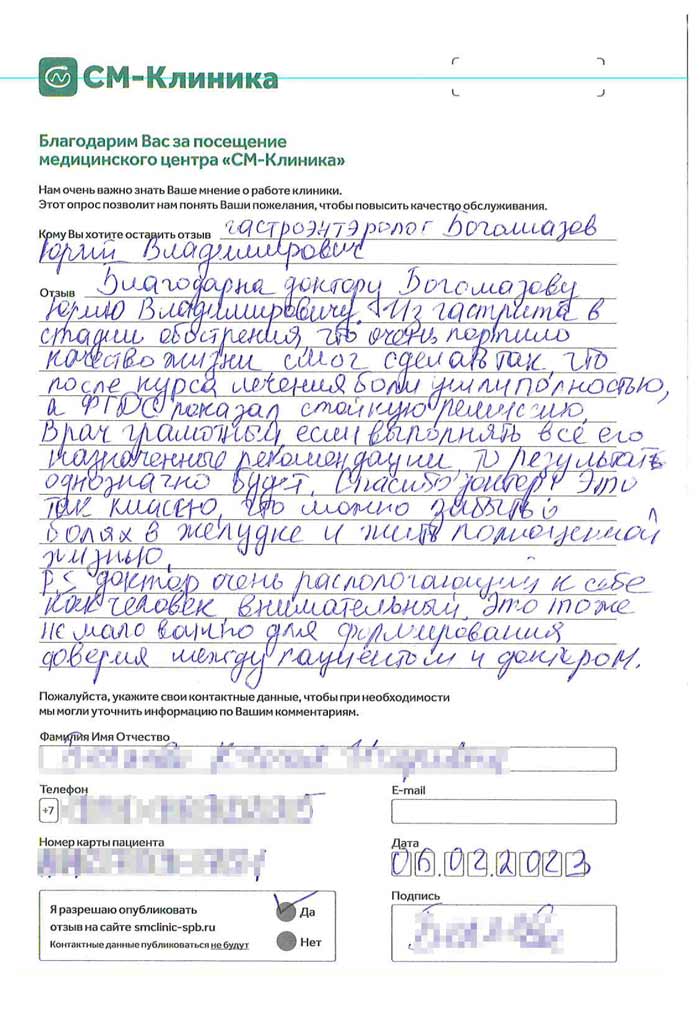 СМ-Клиника
Благодарим Вас за посещение
медицинского центра «СМ-Клиника»
Нам очень важно знать Ваше мнение о работе клиники.
Этот опрос позволит нам понять Ваши пожелания, чтобы повысить качество обслуживания.
Кому Вы хотите оставить отзыв гастроэнтэролог Богомазов
Юрий Владимирович
Отзыв Благодарна доктору Богомазову
Юрию Владимировичу. Из гастрита в
стадии обострения, что очень портило
качество жизни смог сделать так, что
после курса лечения боли ушли полностью,
а ФГДС показал стойкую ремиссию.
Врач грамотный если выполнять все его
назначенные рекомендации, то результать
однозначно будет. Спасибо доктор! Это
так классно, что можно забыть о
болях в желудке и жить полноценной
жизнью.
P.S доктор очень распологающий к себе
как человек внимательный, это тоже
не мало важно для формирования
доверия между пациентом и доктером.
Пожалуйста, укажите свои контактные данные, чтобы при необходимости
мы могли уточнить информацию по Вашим комментариям.
Фамилия Имя Отчество
Телефон
E-mail
+7
Номер карты пациента
Дата
06.02.2023
Я разрешаю опубликовать
отзыв на сайте smclinic-spb.ru
Контактные данные публиковаться не будут
Да
Нет
Подпись